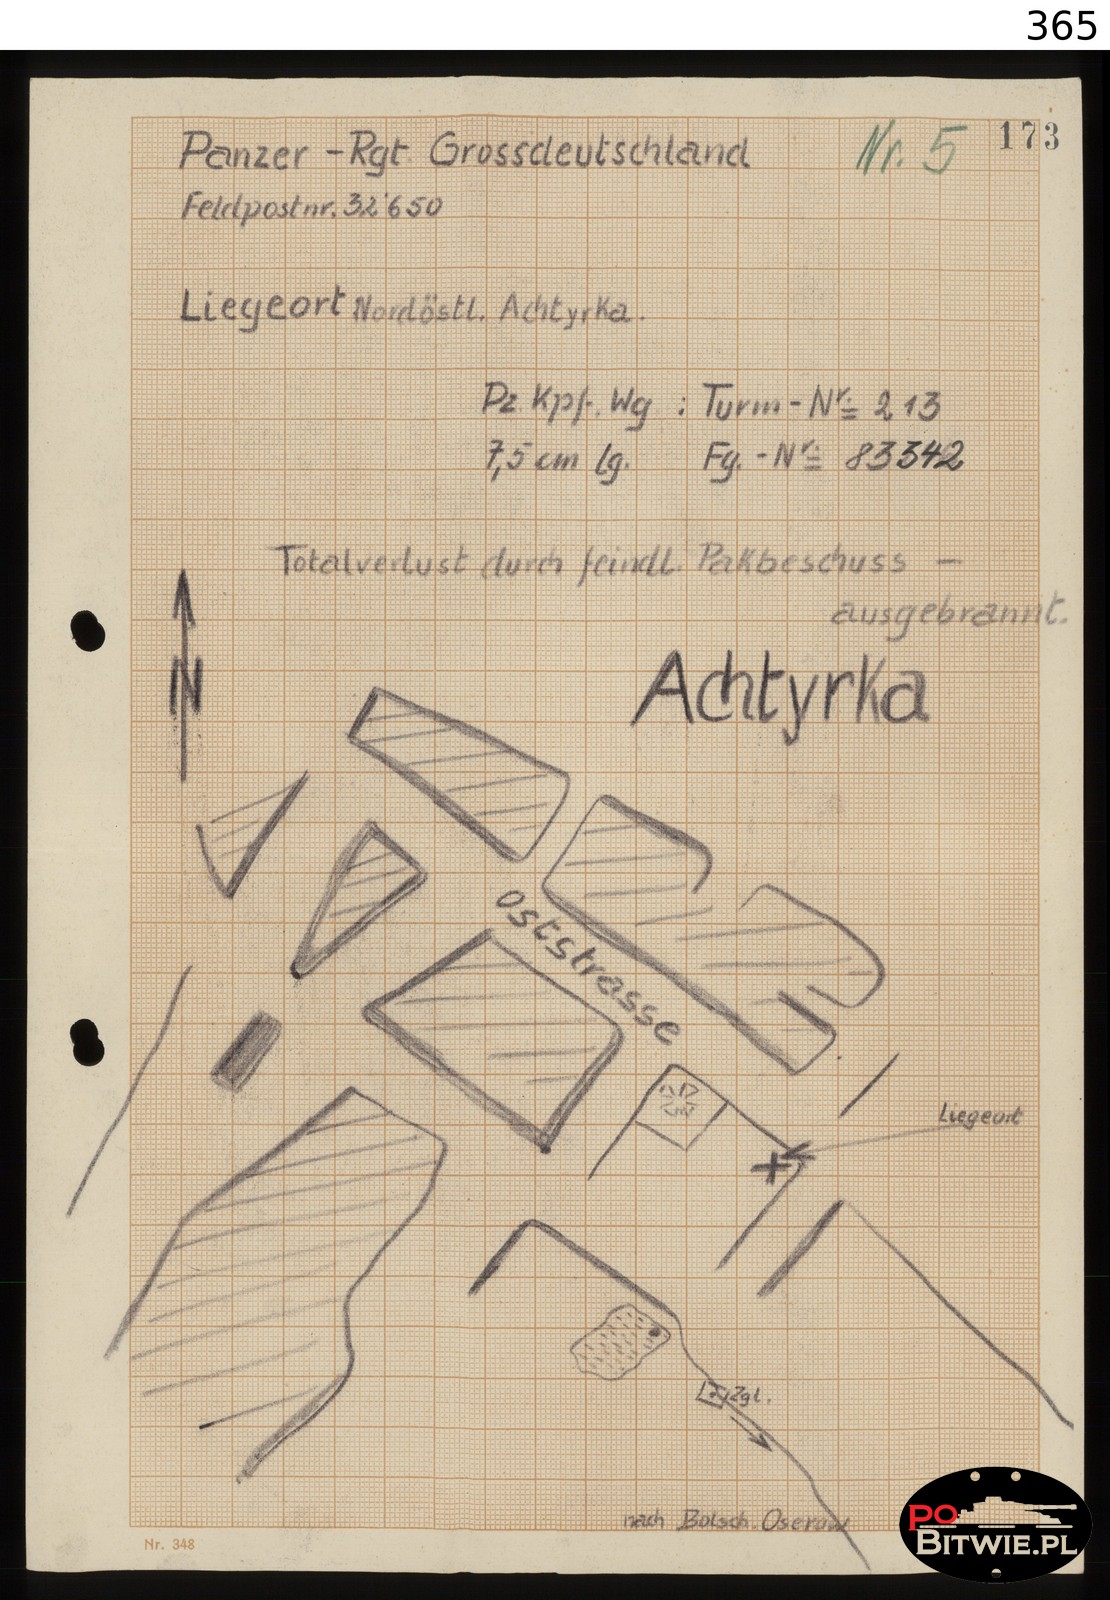 365
173
Nr. 5
Panzer - Rgt. Grossdeutschland
Feldpostnr. 32'650
Liegeort Nordöstl. Achtyrka.
Pz. Kpf. Wg : Turm - Nr. 213
7,5 cm lg. Fg. - Nr. 83342
Totalverlust durch feindl. Pakbeschuss -
ausgebrannt.
N
Achtyrka
Oststrasse
Liegeort
Zgl.
nach Bolsch. Oserow
Nr. 348
PO
BITWIE.PL